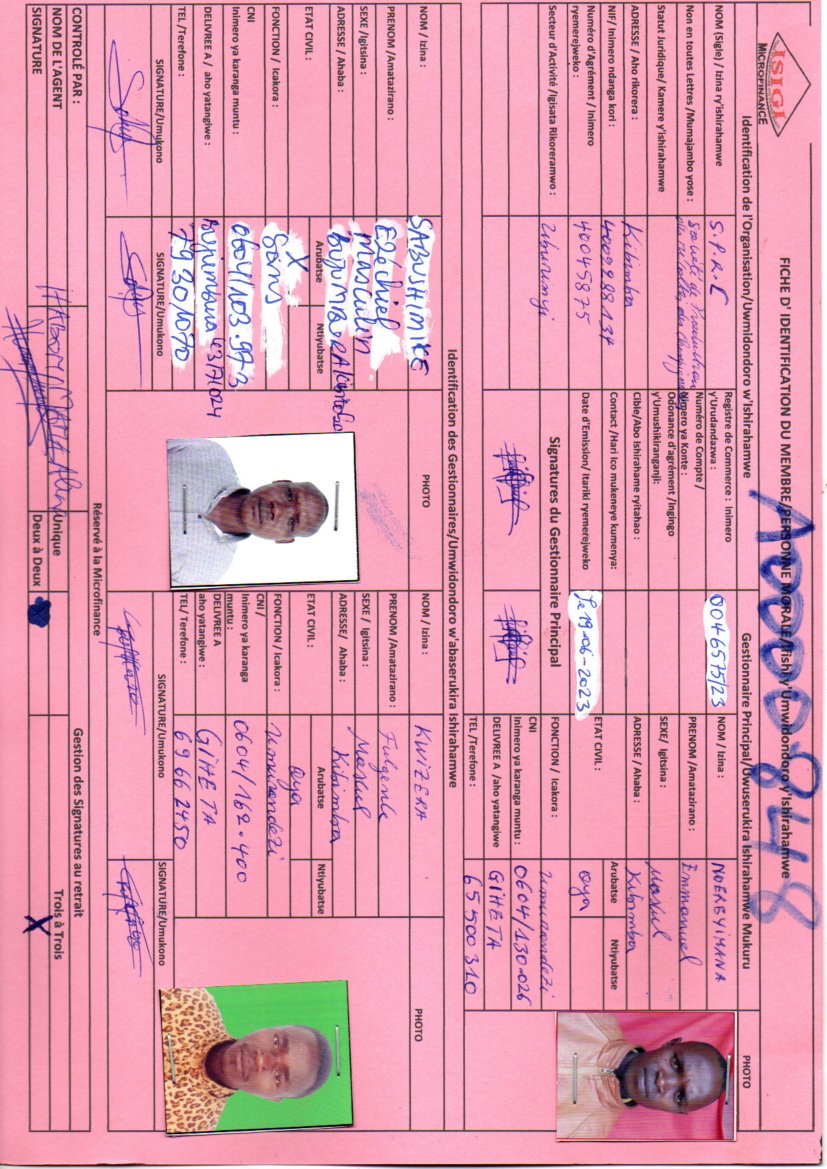 ISIGI
MICROFINANCE
FICHE D' IDENTIFICATION DU MEMBRE /PERSONNE MORALE/Ifishi y'Umwidondoro y'Ishirahamwe
A0000848
Identification de l'Organisation/Uwmidondoro w'Ishirahamwe
Gestionnaire Principal/Uwuserukira Ishirahamwe Mukuru
PHOTO
NOM (Sigle) / Izina ry'ishirahamwe
S.P.R.C
Registre de Commerce : Inimero y'Urudandazwa :
0046575/23
NOM / Izina :
NDEREYIMANA
Non en toutes Lettres /Mumajambo yose :
Société de Production
Numéro de Compte / Nimero ya Konte :
PRENOM /Amatazirano :
Emmanuel
Statut Juridique/ Kamere y'ishirahamwe
Odonance d'agrément /Ingingo y'Umushikiranganji:
SEXE/ Igitsina :
Maskul
ADRESSE / Aho rikorera :
Kibimba
Cible/Abo Ishirahame ryitahao :
ADRESSE / Ahaba :
Kibimba
NIF/ Inimero ndanga kori :
4002288134
Contact /Hari ico mukeneye kumenya:
ETAT CIVIL :
Arubatse
Ntiyubatse
Numéro d'Agrément / Inimero ryemerejweko :
40045875
Date d'Emission/ Itariki ryemerejweko
Le 19-06-2023
Oya
Secteur d'Activité /Igisata Rikoreramwo :
Uburimyi
Signatures du Gestionnaire Principal
FONCTION / Icakora :
Umurundezi
CNI
Inimero ya karanga muntu :
0604/130-026
DELIVREE A /aho yatangiwe
GIHETA
TEL /Terefone :
65 500 310
Identification des Gestionnaires/Umwidondoro w'abaserukira Ishirahamwe
NOM / Izina :
SABUSHIMIKE
PHOTO
NOM / Izina :
KWIZERA
PHOTO
PRENOM /Amatazirano :
Ezéchiel
PRENOM /Amatazirano :
Fulgence
SEXE /Igitsina :
Masculin
SEXE / Igitsina :
Maskul
ADRESSE / Ahaba :
BUJUMBURA
ADRESSE/ Ahaba :
Kibimba
ETAT CIVIL :
Arubatse
Ntiyubatse
X
ETAT CIVIL :
Arubatse
Ntiyubatse
Oya
FONCTION / Icakora :
Sans
FONCTION / Icakora :
Umurundezi
CNI
Inimero ya karanga muntu :
0604/103.973
CNI /
Inimero ya karanga muntu :
0604/162.400
DELIVREE A / aho yatangiwe :
Bujumbura
DELIVREE A aho yatangiwe :
GIHETA
TEL /Terefone :
79 301070
TEL/ Terefone :
69 66 2450
SIGNATURE/Umukono
SIGNATURE/Umukono
SIGNATURE/Umukono
SIGNATURE/Umukono
Réservé à la Microfinance
CONTROLÉ PAR :
Gestion des Signatures au retrait
NOM DE L'AGENT
Unique
Trois à Trois
X
SIGNATURE
Deux à Deux